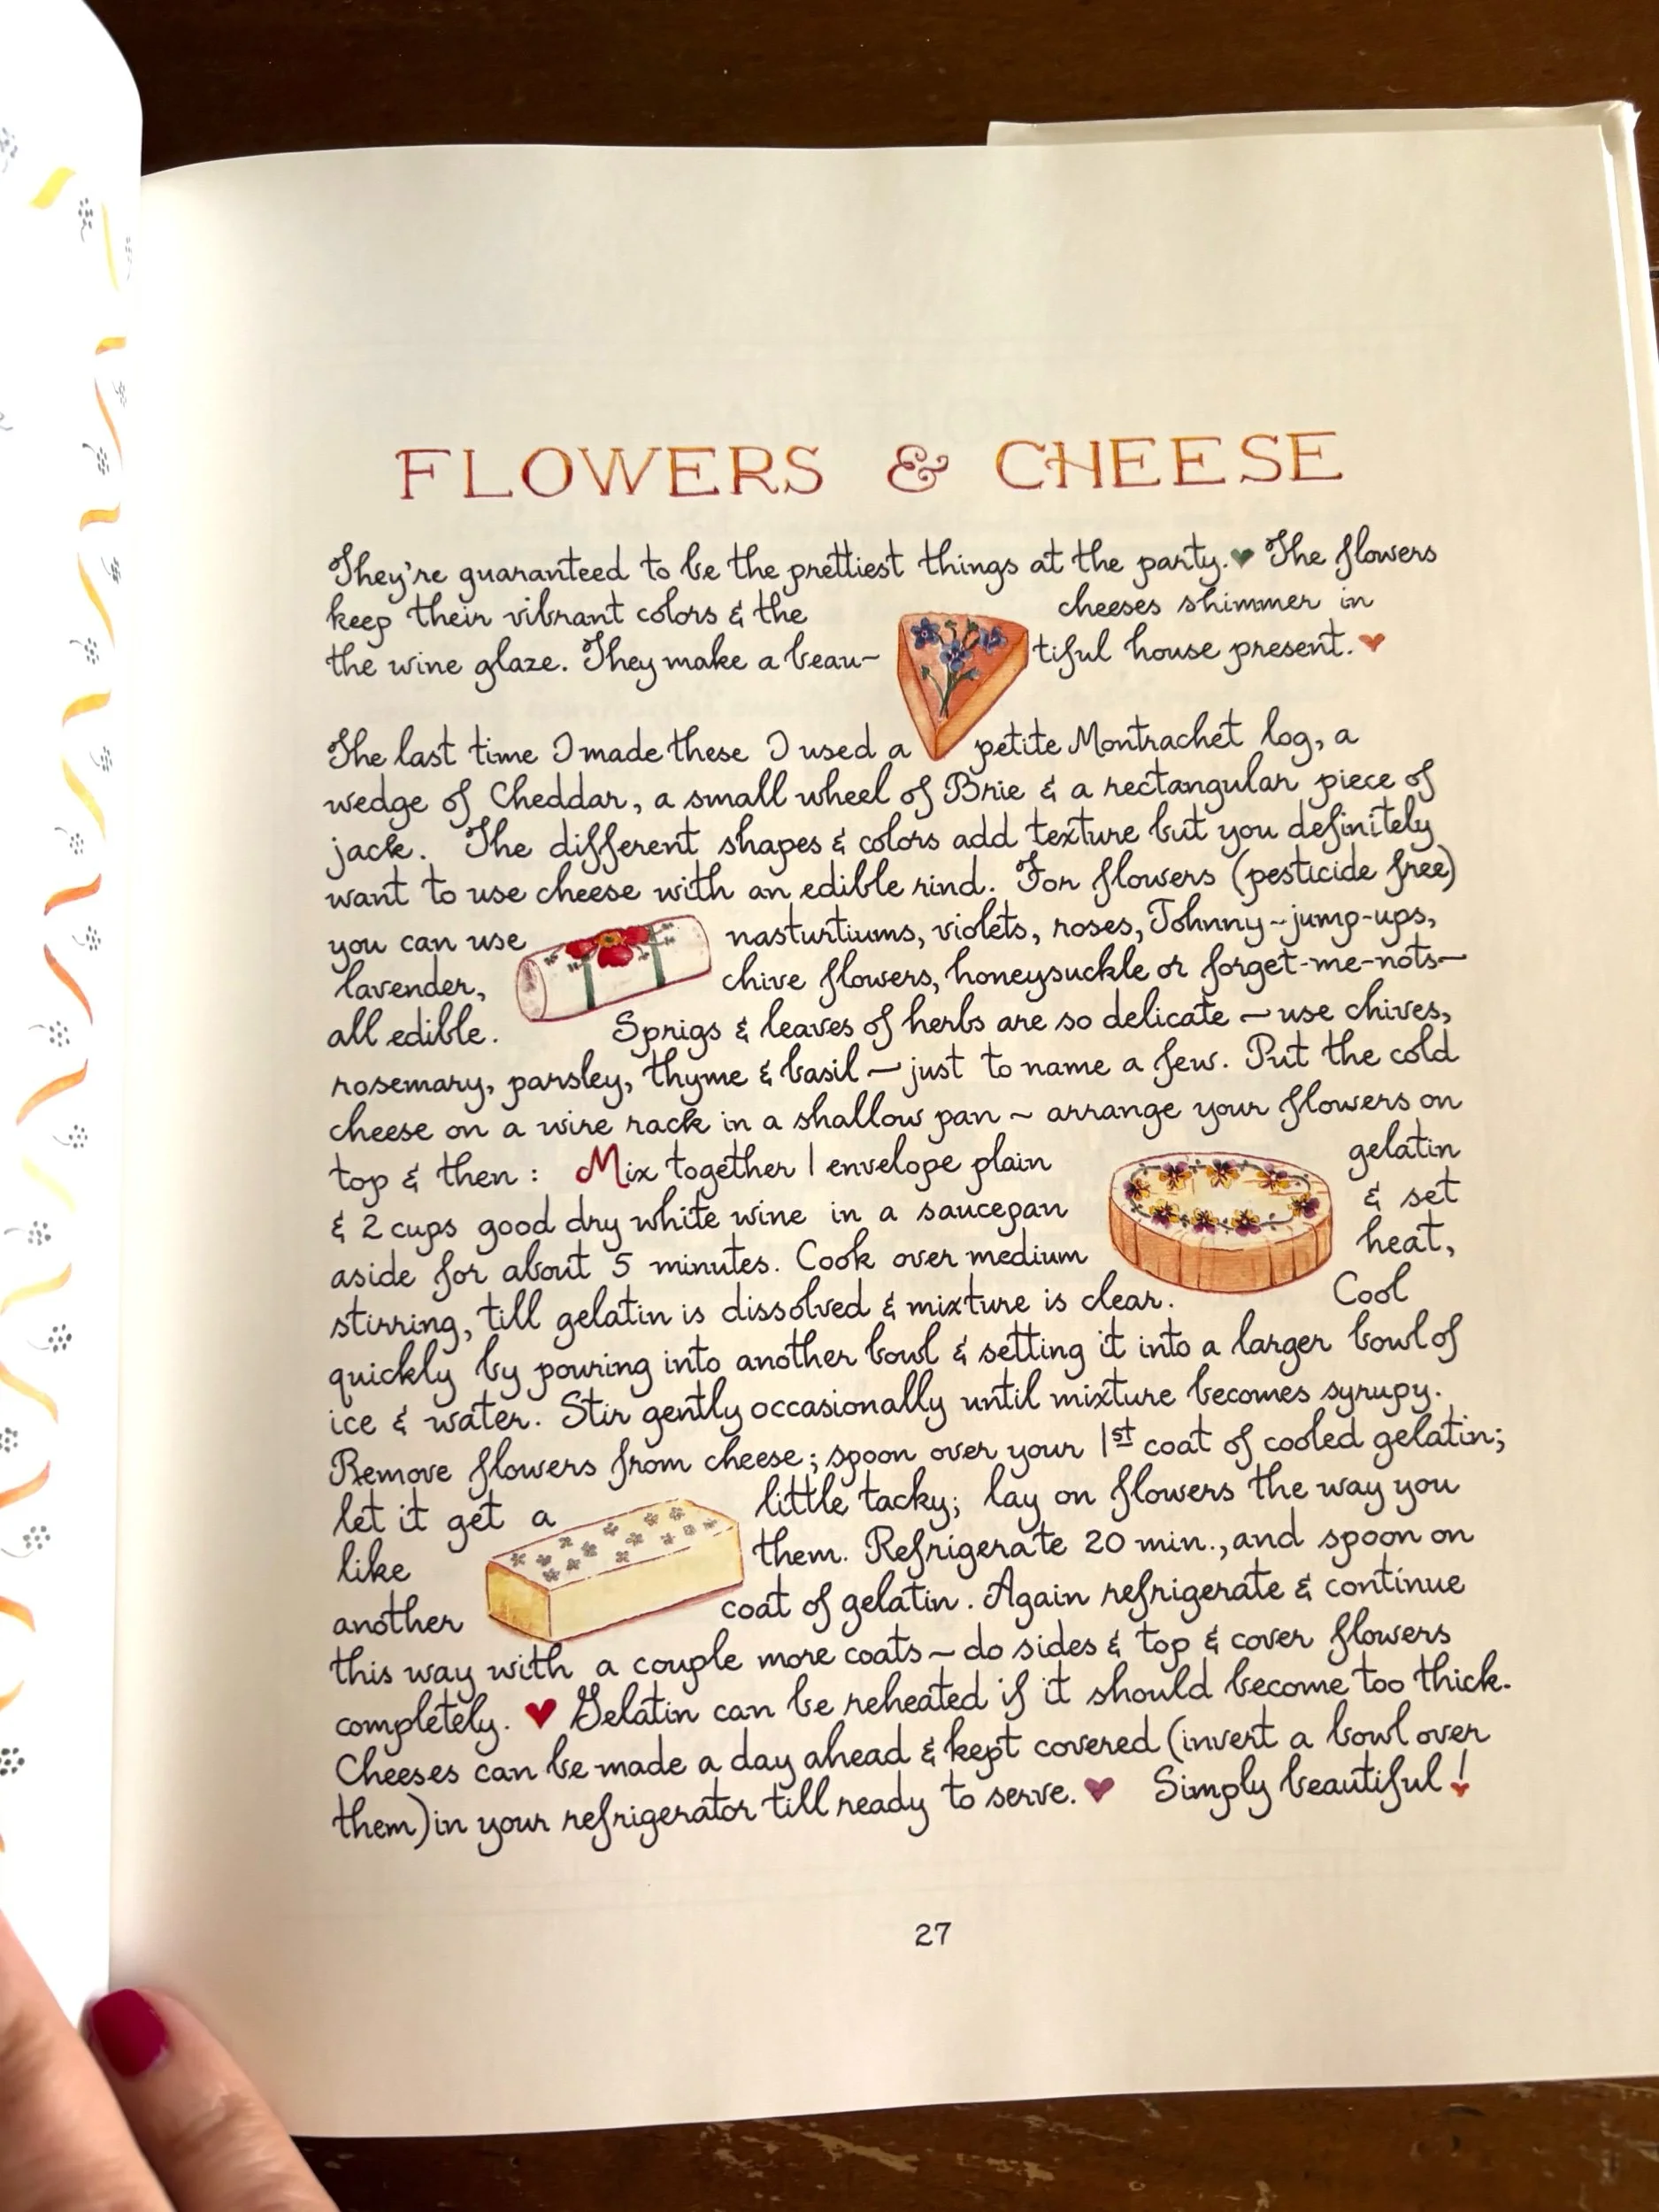 FLOWERS & CHEESE
They're guaranteed to be the prettiest things at the party. The flowers
keep their vibrant colors & the cheeses shimmer in
the wine glaze. They make a beau- tiful house present.
The last time I made these I used a petite Montrachet log, a
wedge of Cheddar, a small wheel of Brie & a rectangular piece of
jack. The different shapes & colors add texture but you definitely
want to use cheese with an edible rind. For flowers (pesticide free)
you can use nasturtiums, violets, roses, Johnny-jump-ups,
lavender, chive flowers, honeysuckle or forget-me-nots—
all edible. Sprigs & leaves of herbs are so delicate — use chives,
rosemary, parsley, thyme & basil — just to name a few. Put the cold
cheese on a wire rack in a shallow pan ~ arrange your flowers on
top & then : Mix together 1 envelope plain gelatin
& 2 cups good dry white wine in a saucepan & set
aside for about 5 minutes. Cook over medium heat,
stirring, till gelatin is dissolved & mixture is clear. Cool
quickly by pouring into another bowl & setting it into a larger bowl of
ice & water. Stir gently occasionally until mixture becomes syrupy.
Remove flowers from cheese; spoon over your 1st coat of cooled gelatin;
let it get a little tacky; lay on flowers the way you
like them. Refrigerate 20 min., and spoon on
another coat of gelatin. Again refrigerate & continue
this way with a couple more coats ~ do sides & top & cover flowers
completely. Gelatin can be reheated if it should become too thick.
Cheeses can be made a day ahead & kept covered (invert a bowl over
them) in your refrigerator till ready to serve. Simply beautiful!
27